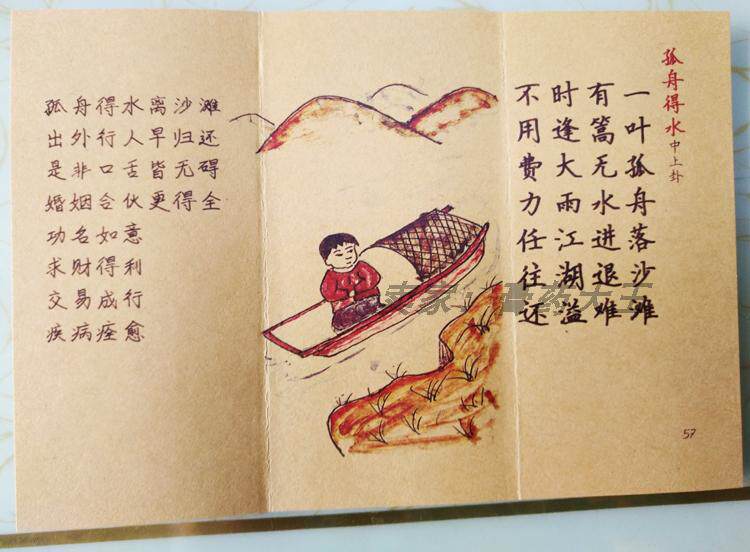 孤舟得水 中上卦
一叶孤舟落沙滩
有篙无水进退难
时逢大雨江湖溢
不用费力任往还
57
孤舟得水离沙滩
出外行人早归还
是非口舌皆无碍
婚姻合伙更得全
功名如意
求财得利
交易成行
疾病痊愈
卖家 药大王